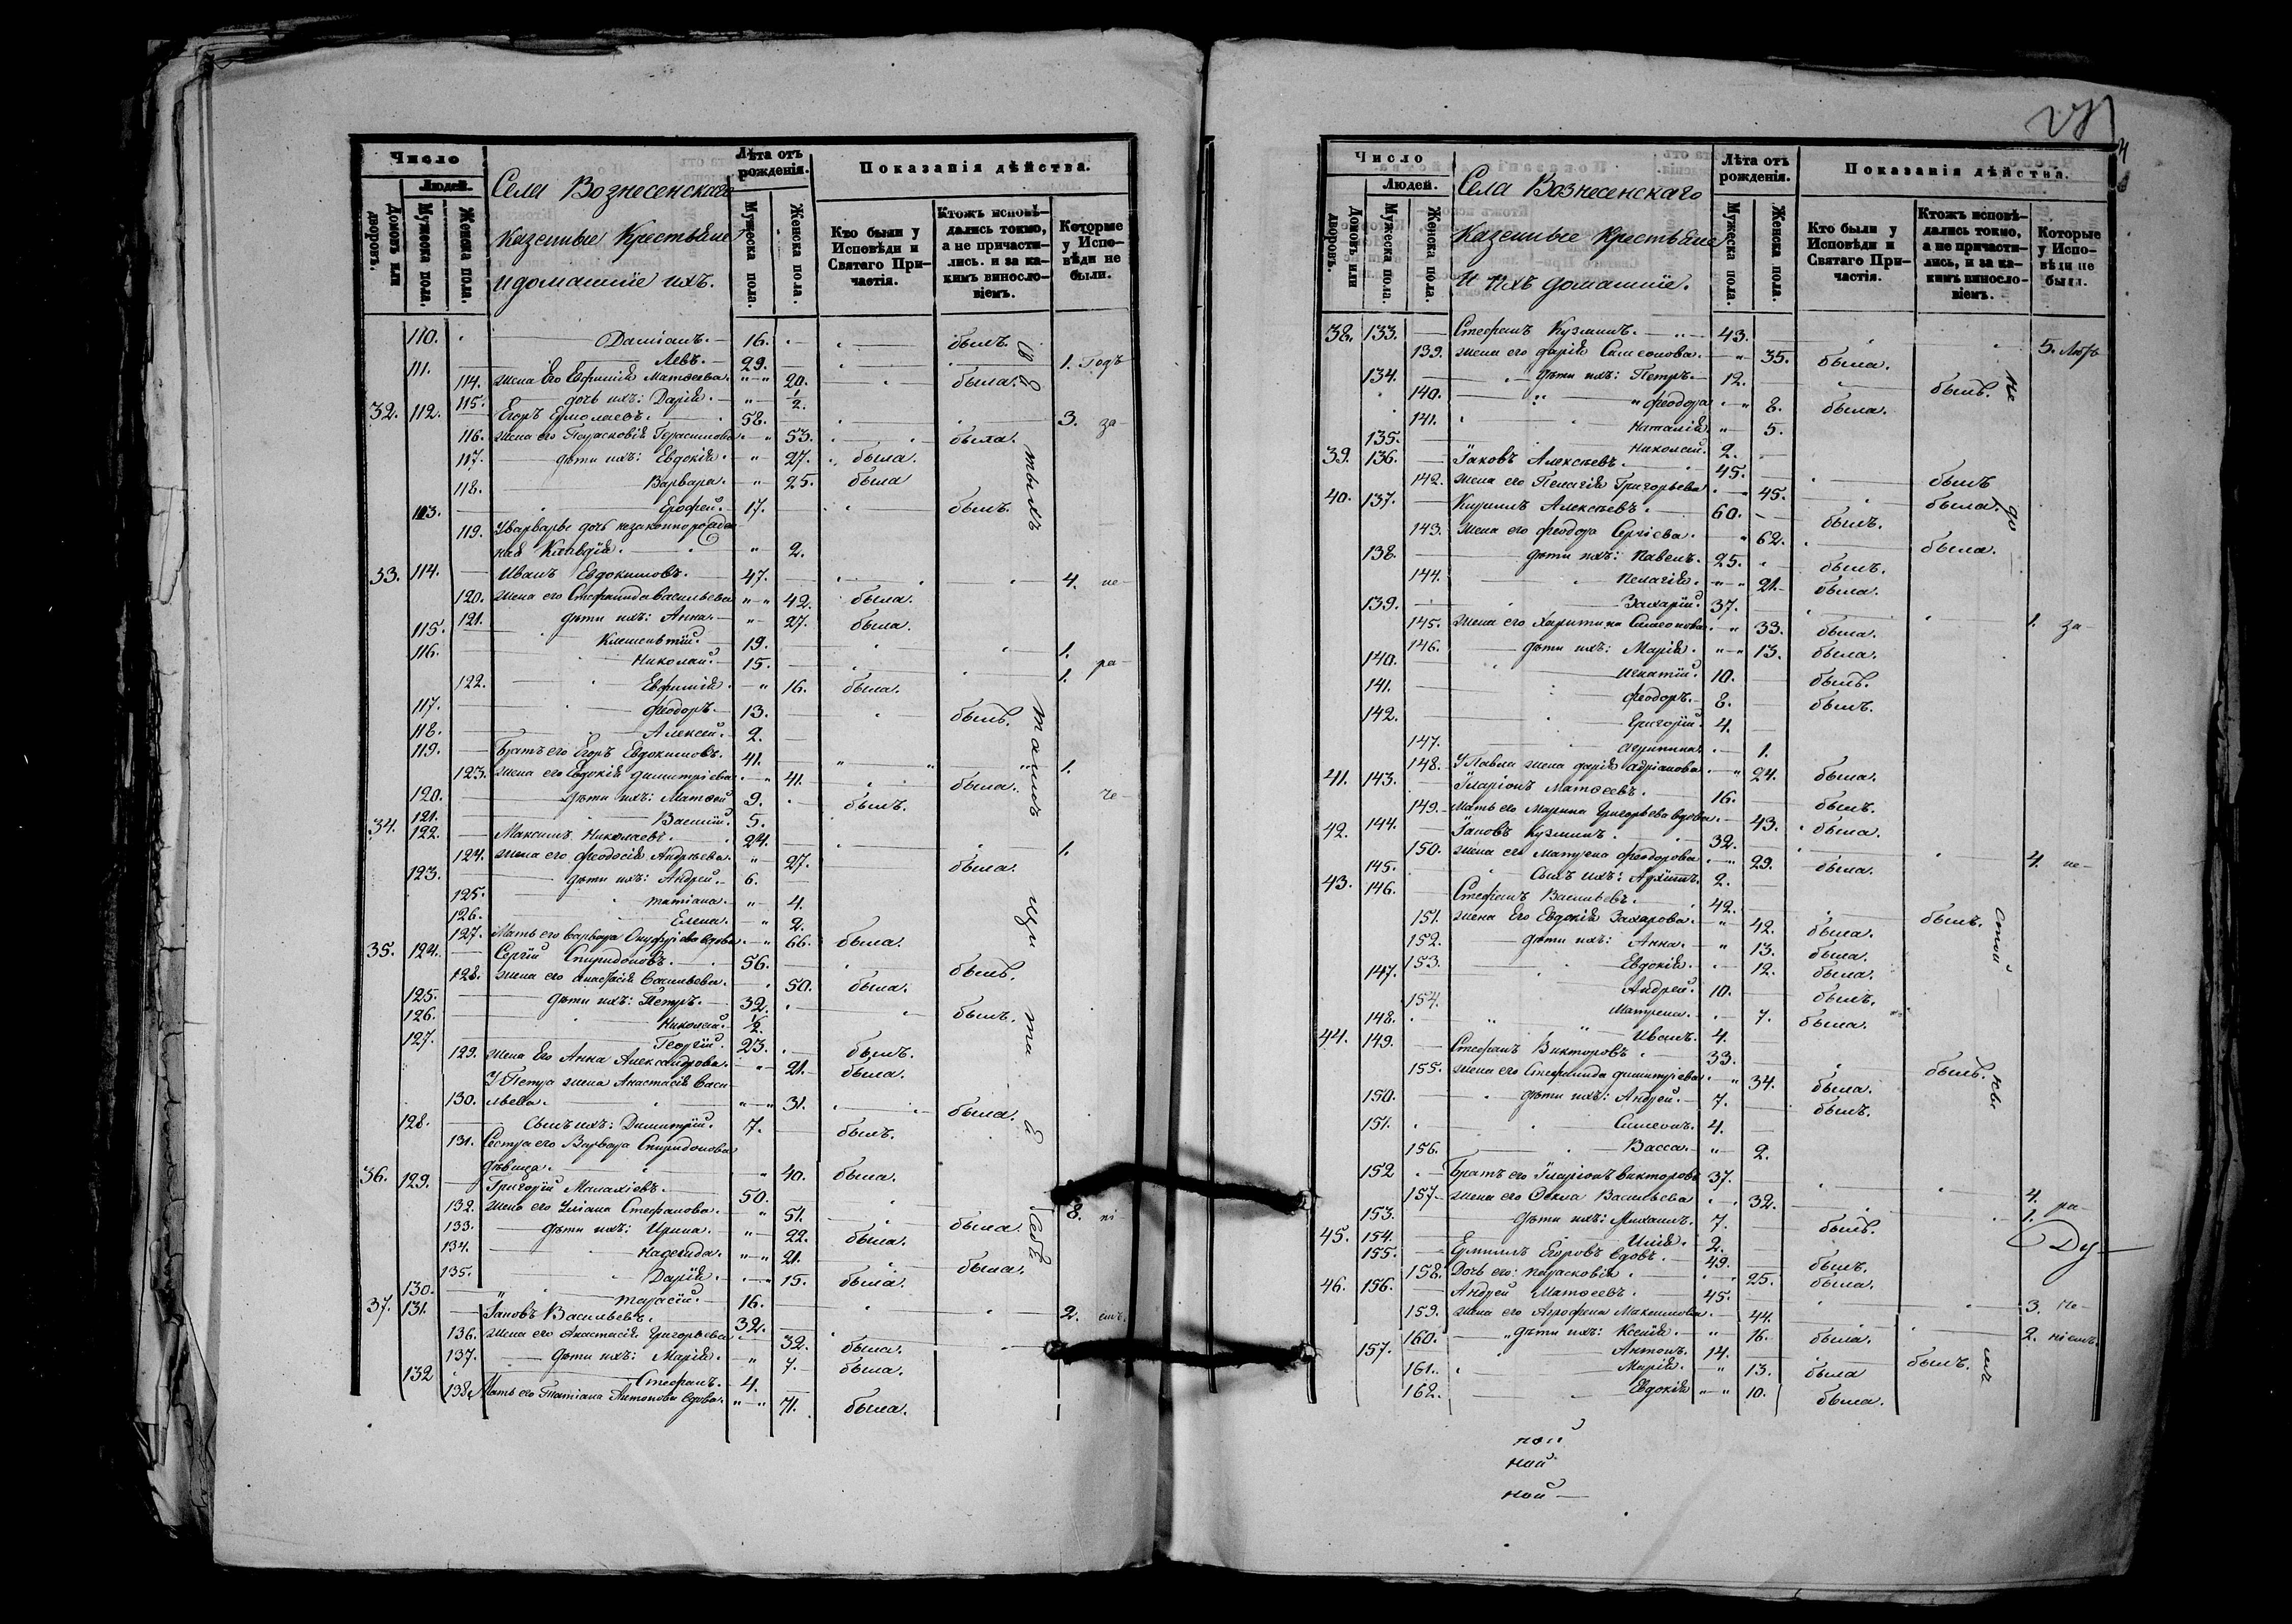 Число
Людей.
Домовъ или дворовъ.
Мужеска пола.
Женска пола.
Села Вознесенскаго
Казенные Крестьяне
и домашніе ихъ.
Лѣта отъ рожденія.
Мужеска пола.
Женска пола.
Показанія дѣйства.
Кто были у Исповѣди и Святаго Причастія.
Ктожъ исповѣдались токмо, а не причастились. и за какимъ винословіемъ.
Которые у Исповѣди не были.
110. Даміанъ. 16. былъ.
111. Левъ. 29. 1. годъ
114. жена Его Евфимія Матѳеева. 20. была.
115. дочь ихъ: Дарія. 1/2.
32. 112. Егоръ Ермолаевъ. 58. 3. за-
116. жена его Парасковія Герасимова 53. была.
117. дѣти ихъ: Евдокія. 27. была.
118. Варвара. 25. была
113. Ерофей. 17. былъ.
119. У варвары дочь незаконнорожден
ная Клавдія. 2.
33. 114. Иванъ Евдокимовъ. 47. 4. не-
120. жена его Стефанида Васильева 42. была.
121. дѣти ихъ: Анна. 27. была.
115. Климентій. 19. 1.
116. Николай. 15. 1. ра-
122. Евфимія. 16. была.
117. Феодоръ. 13. былъ.
118. Алексей. 2.
119. Братъ его Егоръ Евдокимовъ. 41. 1.
123. жена его Евдокія Димитріева. 41. была.
120. дѣти ихъ: Матѳей 9. былъ. че-
121. Василій. 5.
34. 122. Максимъ Николаевъ. 24. 1.
124. жена его Феодосія Андреева. 27. была.
123. дѣти ихъ: Андрей. 6.
125. Татіана. 4.
126. Елена. 2.
127. Мать его Варвара Онуфріева вдова. 66. была.
35. 124. Сергій Спиридоновъ. 56. былъ.
128. жена его Анастасія Васильева. 50. была.
125. дѣти ихъ: Петръ. 32. былъ.
126. Николай. 1/2.
127. Георгій. 23. былъ.
129. жена Его Анна Александрова. 21. была.
У Петра жена Анастасія Васи
130. льева. 31. была.
128. Сынъ ихъ: Димитрій. 7. былъ.
131. Сестра его Варвара Спиридонова
дѣвица. 40. была.
36. 129. Григорій Малахіевъ. 50. 8. ні-
132. жена его Уліана Стефанова. 51. была.
133. дѣти ихъ: Ирина. 22. была.
134. Надежда. 21. была.
135. Дарія. 15. была.
130. Тарасій. 16.
37. 131. Іаковъ Васильевъ. 32. 2. емъ.
136. жена его Анастасія Григорьева 32. была.
137. дѣти ихъ: Марія. 7. была.
132 Стефанъ. 4.
138. Мать его Татіана Антонова вдова. 71. была.
Число
Людей.
Домовъ или дворовъ.
Мужеска пола.
Женска пола.
Села Вознесенскаго
Казенные Крестьяне
и ихъ домашніе.
Лѣта отъ рожденія.
Мужеска пола.
Женска пола.
Показанія дѣйства.
Кто были у Исповѣди и Святаго Причастія.
Ктожъ исповѣдались токмо, а не причастились, и за какимъ винословіемъ.
Которые у Исповѣди не были.
38. 133. Стефанъ Кузминъ. 43. 5.
139. жена его Дарія Симеонова. 35. была.
134. дѣти ихъ: Петръ. 12. былъ. не
140. Феодора 8. была.
141. Наталія 5.
135. Николай. 2.
39. 136. Іаковъ Алексѣевъ. 45. былъ
142. жена его Пелагія Григорьева 45. была. до
40. 137. Кирилъ Алексѣевъ. 60. былъ.
143. жена его Феодора Сергіева. 62. была.
138. дѣти ихъ: Павелъ. 25. былъ.
144. Пелагія. 21. была.
139. Захарій. 37. 1. за-
145. жена его Харитина Симеонова. 33. была.
146. дѣти ихъ: Марія. 13. была.
140. Игнатій. 10. былъ.
141. Феодоръ. 8. былъ.
142. Григорій. 4.
147. 1.
148. У Павла жена Дарія Адріанова. 24. была.
41. 143. Іларіонъ Матѳеевъ. 16. былъ.
149. Мать его Марина Григорьева вдова. 43. была.
42. 144. Іаковъ Кузминъ. 32. 4. не-
150. жена его Матрена Феодорова 29. была.
145. Сынъ ихъ: 2.
43. 146. Стефанъ Васильевъ. 42. былъ. стой
151. жена Его Евдокія Захарова. 42. была.
152. дѣти ихъ: Анна. 13. была.
153. Евдокія. 12. была.
147. Андрей. 10. былъ.
154. Матрена. 7. была.
148. Иванъ. 4.
44. 149. Стефанъ Викторовъ 33. былъ.
155. жена его Стефанида Димитріева. 34. была.
150. дѣти ихъ: Андрей. 7. былъ.
151. Симеонъ. 4.
156. Васса. 2.
152 Братъ его Іларіонъ Викторовъ 37. 4.
157 жена его Ѳекла Васильева 32. 1. ра-
153. дѣти ихъ: Михаилъ. 7. былъ.
45. 154. Илія. 2.
155. Ермилъ Егоровъ вдовъ. 49. былъ.
158. Дочь его: Параскевія. 25. была.
46. 156. Андрей Матѳеевъ. 45. 3. Не-
159. жена его Агрофена Максимова. 44. 2. ніемъ.
160. дѣти ихъ: Ксенія. 16. была.
157. Антонъ. 14. былъ.
161. Марія. 13. была
162. Евдокія 10. была.
ной
ной
ной